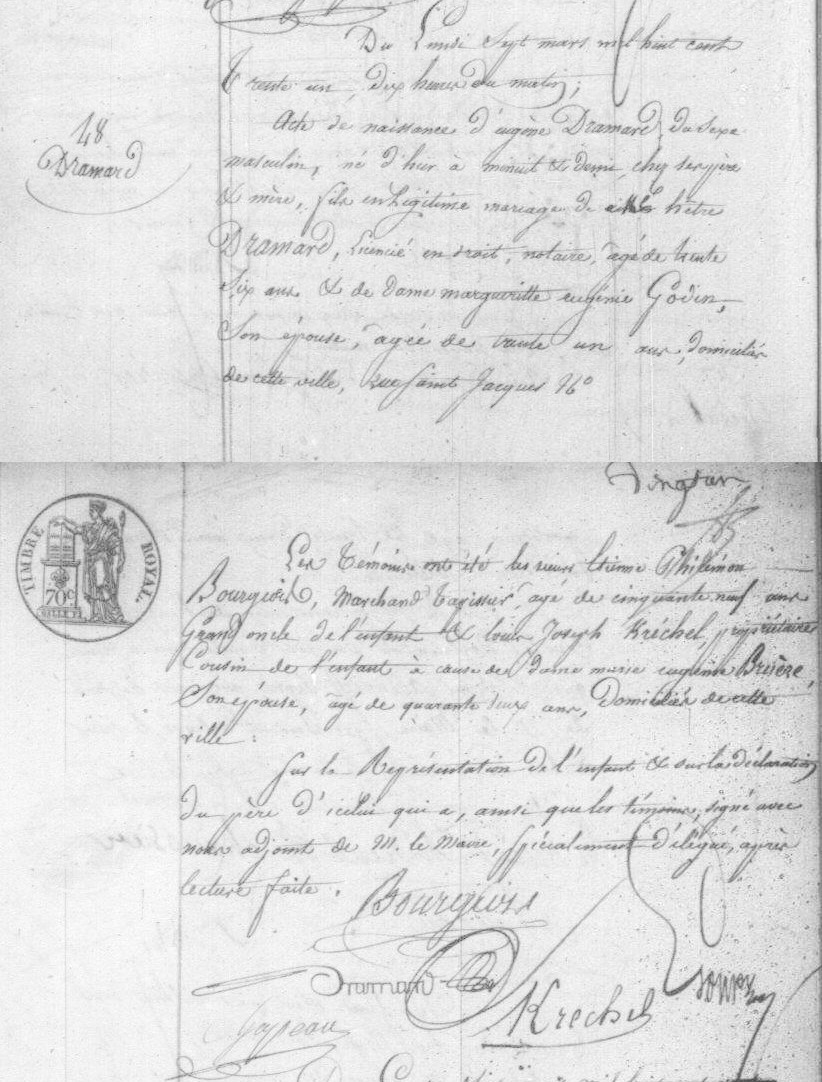 Du Lundi Sept mars mil huit cent
trente un, dix heures du matin;
48
Dramard
Acte de naissance d'eugène Dramard, du Sexe
masculin, né d'hier à minuit & demi, chez ses père
& mère, fils en Légitime mariage de
Dramard, Licencié en droit, notaire, âgé de trente
Six ans & de Dame margueritte eugénie Godin,
Son épouse, âgée de trente un ans, domiciliés
de cette ville, rue Saint Jacques
Vingt
Les témoins ont été les sieurs Etienne Philémon
Bourgeois, Marchand Tapissier, agé de cinquante neuf ans
Grand oncle de l'enfant & louis Joseph Kréchel, propriétaire
Cousin de l'enfant à cause de dame marie eugénie Bruère,
Son épouse, âgé de quarante deux ans, Domiciliés de cette
ville.
TIMBRE ROYAL.
70c
Sur la Représentation de l'enfant & sur la déclaration
du père d'icelui qui a, ainsi que les témoins, signé avec
nous adjoint de M. le Maire, spécialement délégué, après
lecture faite.
Bourgeois
Dramard
Krechel